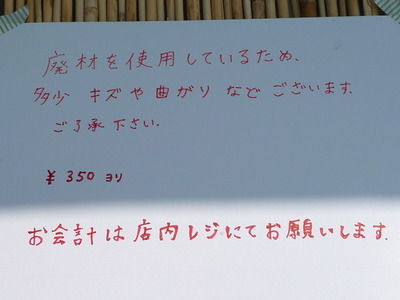 廃材を使用しているため、
多少 キズや曲がり などございます。
ご了承下さい。
¥350 ヨリ
お会計は店内レジにてお願いします。